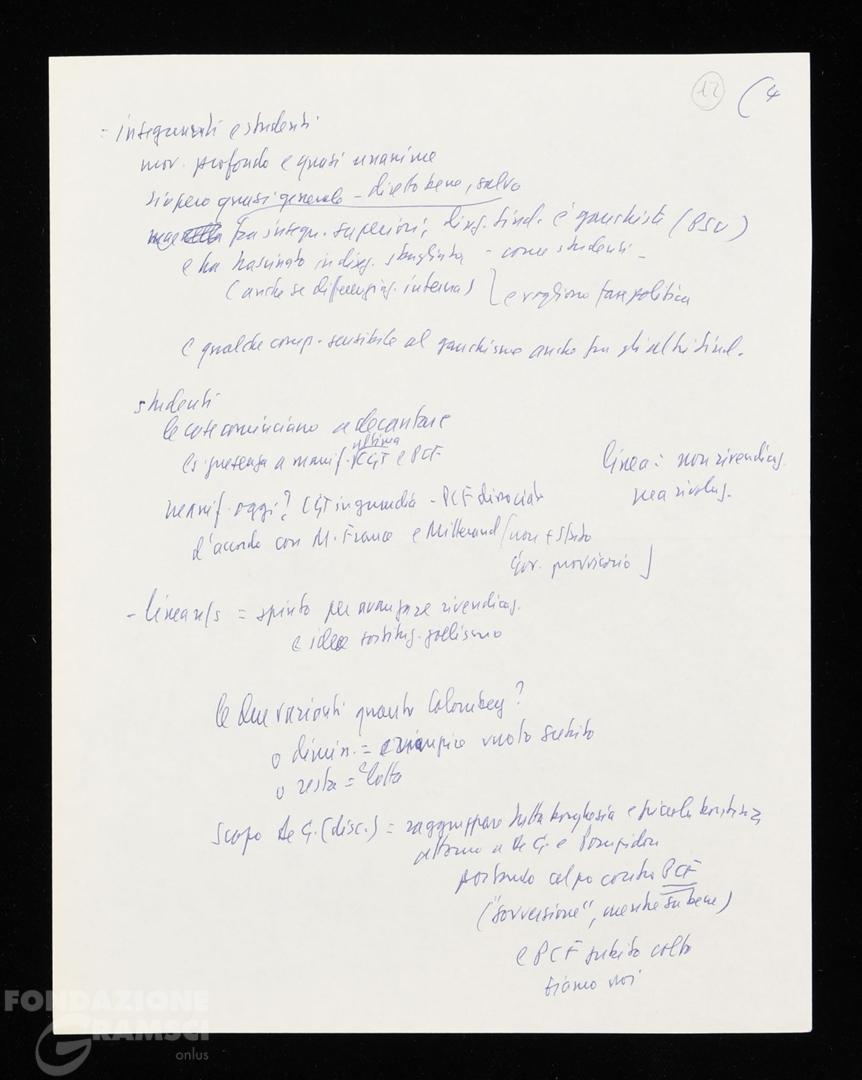 12 (4
= insegnanti e studenti
mov. profondo e quasi unanime
sciopero quasi generale - diretto bene, salvo
fra insegn. superiori, dirig. sind. è gauchista (PSU)
e ha trascinato in direz. sbagliata - come studenti -
(anche se differenziaz. interna) e vogliono fare politica
e qualche comp. sensibile al gauchismo anche fra gli altri sind.
studenti
le cose cominciano a decantare
es. presenza a manif. ultima CGT e PCF
linea: non rivendicaz.
ma rivoluz.
manif. oggi? CGT in guardia - PCF dissociato
d'accordo con M. France e Mitterand (non + subito
Gov. provvisorio)
- linea n/s = spinta per avanzare rivendicaz.
e idea sostituz. gollismo
le due varianti quanto Colombey?
o dimiss. = riempire vuoto subito
o resta = lotta
Scopo De G. (disc.) = raggruppare tutta borghesia e piccola
attorno a De G. e Pompidou
portando colpo contro PCF
("sovversione", mentre sa bene)
e PCF subito colto
siamo noi
FONDAZIONE
GRAMSCI
onlus